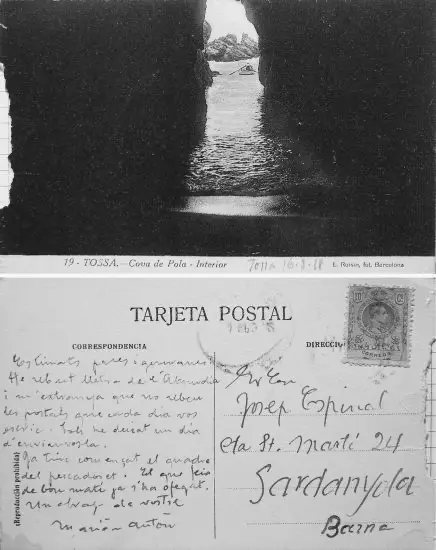 19 - TOSSA. - Cova de Pola - Interior
Tossa 16-8-18
E. Roisin, fot. Barcelona
TARJETA POSTAL
CORRESPONDENCIA
DIRECCIÓN
(Reproducción prohibida)
Estimats pares i germanes:
He rebut lletra de l'
i m'extranya que no rebeu
les postals que cada dia vos
escric. Sols he deixat un dia
d'enviarvosla.
Ja tinc començat el quadro
del pescadoret. El que feia
de bon matí ja s'ha ofegat.
Un abraç de vostre
Marian Anton
Josep Espinal
Cta St. Martí 24
Sardanyola
Barna